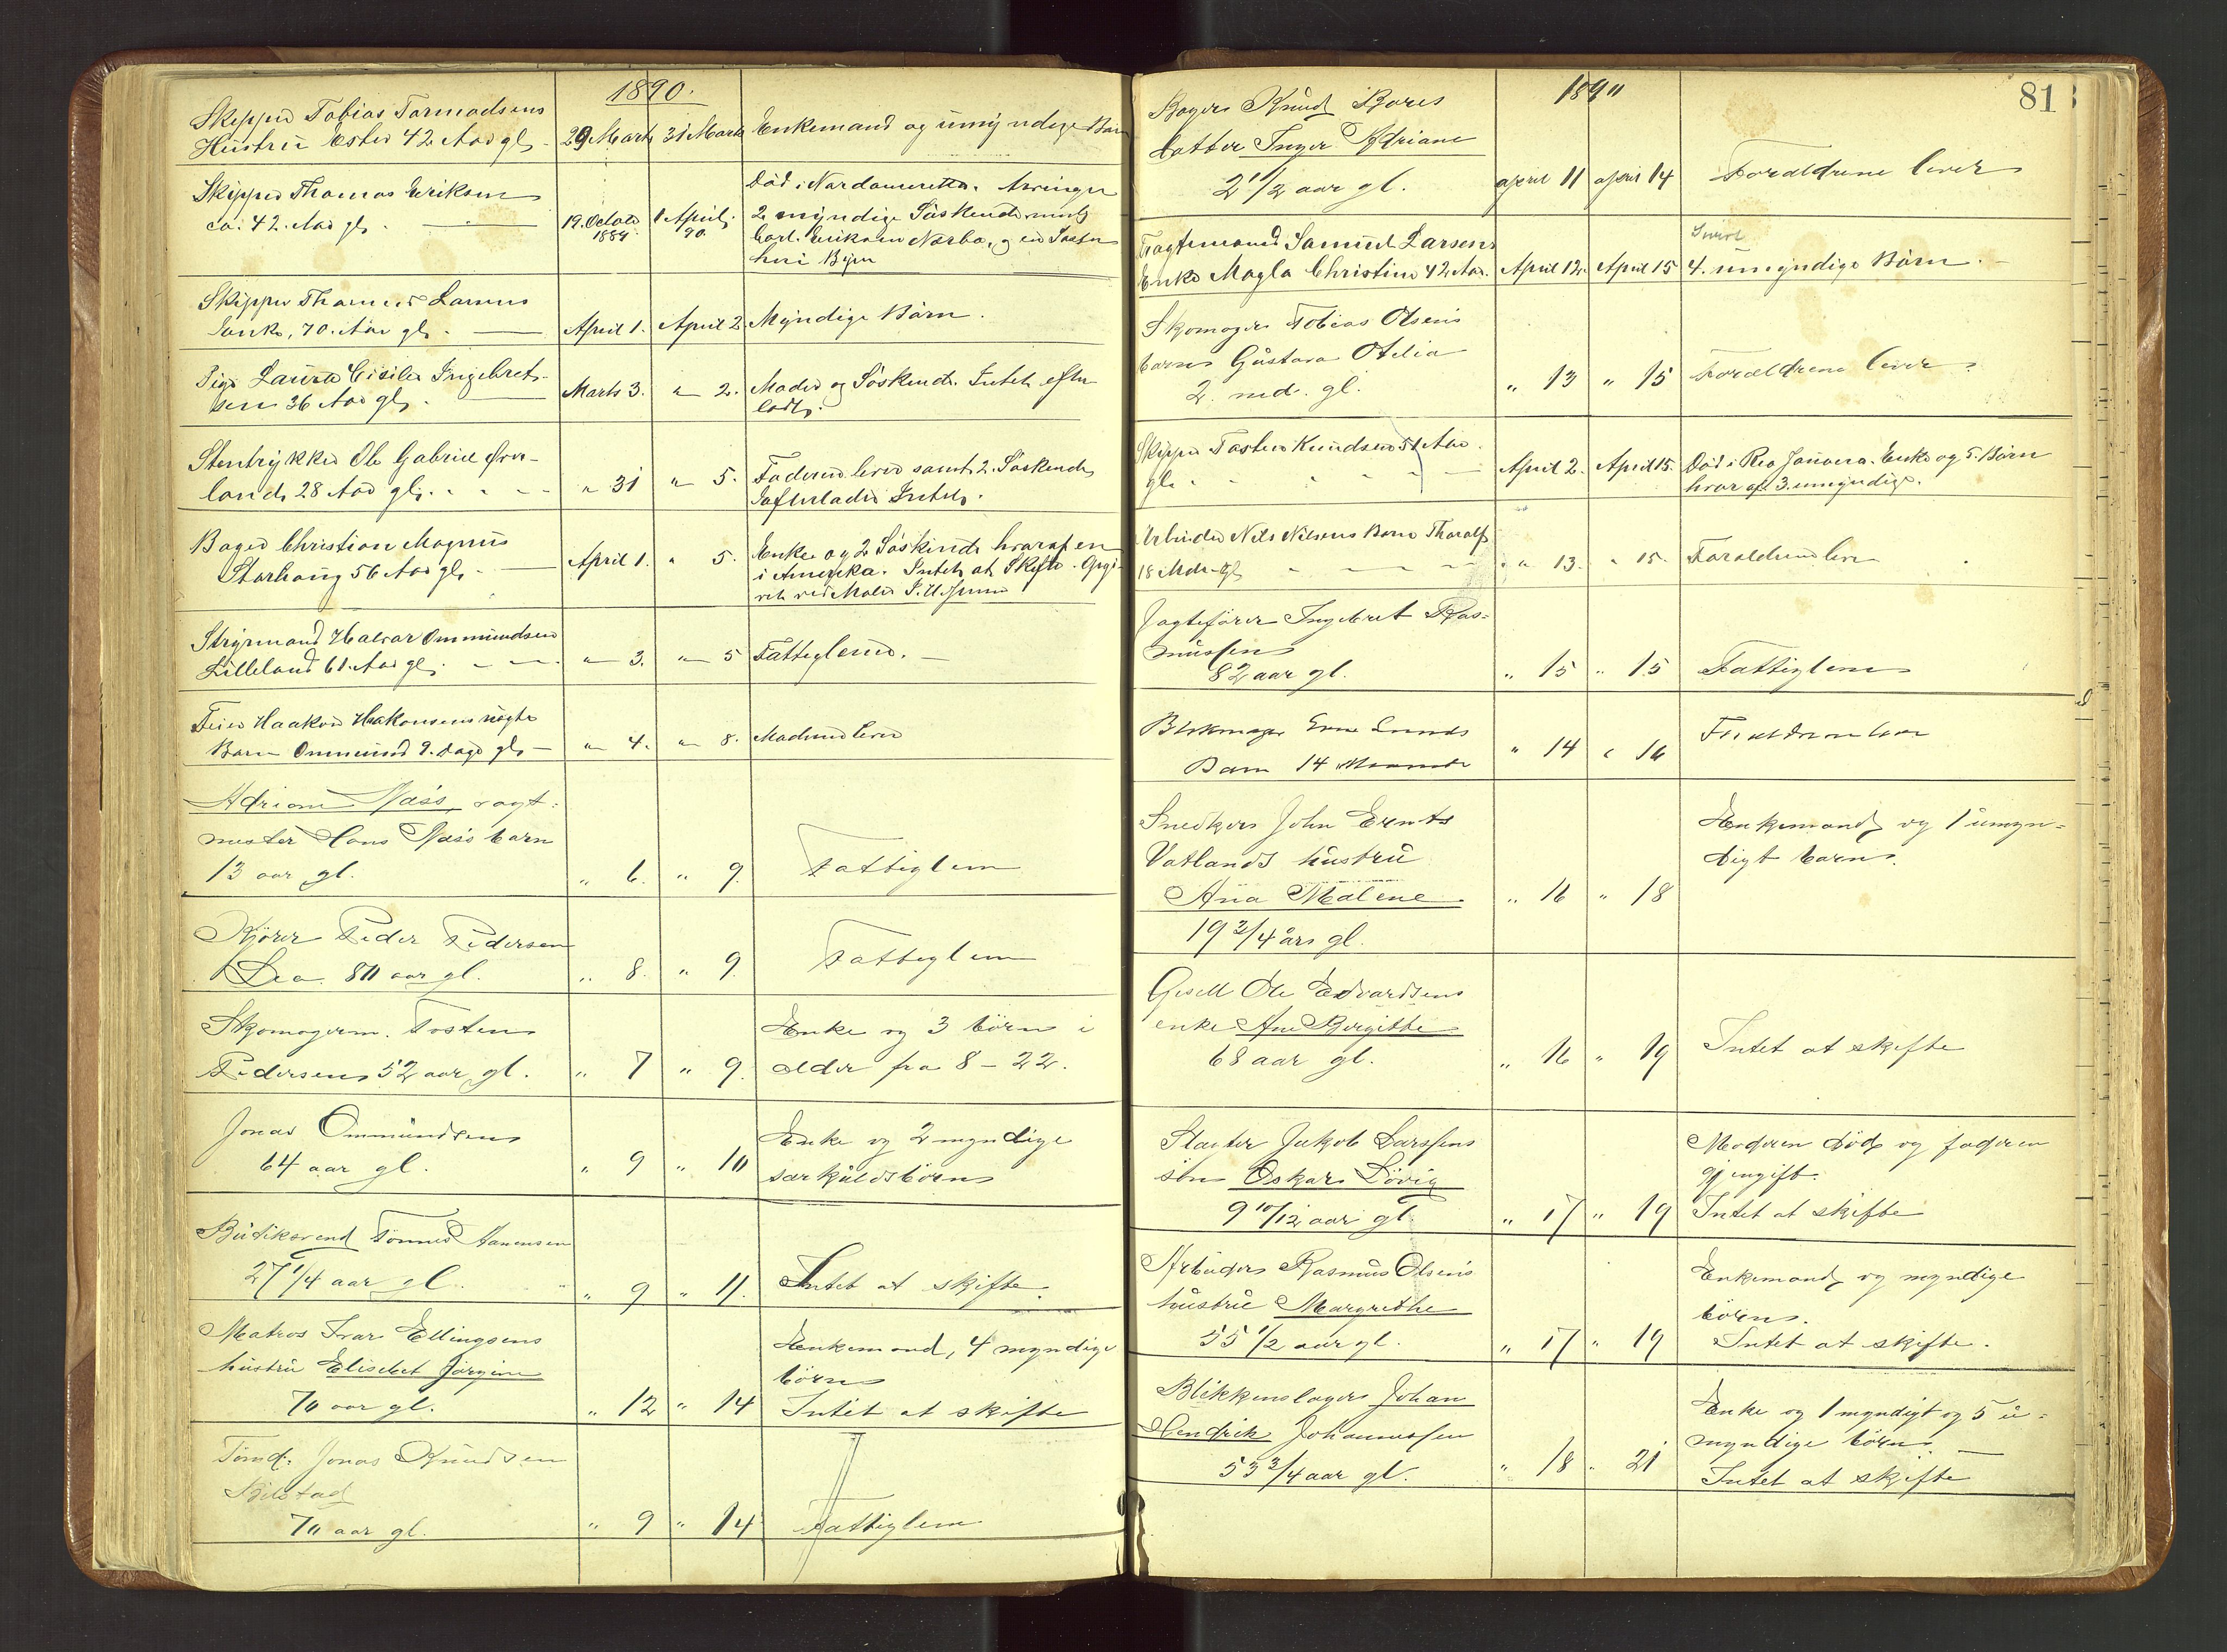 1890.
Skipper Tobias Tormodsens
Hustru Ester 42 Aar gl. 29 Marts 31 Marts Enkemand og umyndige Børn
Skipper Thomas Eriksen
ca. 42. Aar gl. 19. Octobr 1889 1 April 90. Død i Nordamerika. Arvinger
2 myndige Søskende
Carl Eriksen og en Søster
her i Byen
Skipper Larsens
Enke, 70. Aar gl. April 1. April 2. Myndige Børn.
Pige Laura Cisilie Ingebret-
sen 36 Aar gl. Marts 3. " 2. Moder og Søskende. Intet efter
ladt.
Stentrykker Ole Gabriel
land 28 Aar gl. " 31 " 5. Faderen lever samt 2. Søskende
Efterlader Intet.
Bager Christian Magnus
Storhaug 56 Aar gl. April 1. " 5. Enke og 2 Søskende hvoraf en
i Amerika. Intet at Skifte. Opgi-
vet ved Maler
Styrmand Halvar Ommundsen
Lilleland 61. Aar gl. " 3. " 5 Fattiglem.
Feier Haakon Hakonsens uægte
Barn Ommund 9. Dage gl. " 4. " 8. Moderen lever
Adriane Næss, vagt-
mester Hans Næss barn
13 aar gl. " 6. " 9. Fattiglem
Kjører Peder Pedersen
Lea 80 aar gl. " 8. " 9. Fattiglem
Skomagerm. Tosten
Pedersen 52 aar gl. " 7 " 9. Enke og 3 børn i
alder fra 8 - 22.
Jonas Ommundsen
64 aar gl. " 9 " 10 Enke og 2 myndige
særkuldsbørn
Budikerend Tønnes Aanensen
27 1/4 aar gl. " 9 " 11. Intet at skifte.
Matros Ivar Ellingsens
hustru Elisebet Jørgine
70 aar gl. " 12 " 14 Enkemand, 4 myndige
børn
Intet at skifte
Tømd. Jonas Knudsen
70 aar gl. " 9 " 14 Fattiglem
1890
81
Bagers Knud Bores
datter Inger Adriane
2 1/2 aar gl. april 11 april 14 Forældrene lever
Fragtemand Samuel Larsens
Enke Magla Christine 42 Aar. April 12. April 15 4. umyndige Børn.
Skomager Tobias Olsens
barn Gustava Otelia
2. md. gl. " 13 " 15 Forældrene lever.
Skipper Tosten Knudsen 51 Aar
gl. April 2. April 15. Død i Rio Janeiro. Enke og 5. Børn
hvor af 3. umyndige.
Arbeider Nils Nilsens Barn Tharalf
18 Mdr. gl. " 13. " 15. Forældrene lever
Jagtefører Ingebret Ras-
mussen
82 aar gl. " 15 " 15 Fattiglem
Blokmager Lunds
Barn 14 Maaneder " 14 " 16 Forældrene lever
Snedker John Ernts
Vatlands hustru
Ana Malene
19 3/4 års gl. " 16 " 18 Enkemand og 1 umyn-
digt barn.
Gesell Ole Edvardsens
enke Ane Birgitte
68 aar gl. " 16 " 19 Intet at skifte
Slagter Jakob Larssens
søn Oskar Lövig
9 10/12 aar gl. " 17 " 19 Moderen død og faderen
gjengift.
Intet at skifte
Arbeider Rasmus Olsens
hustru Margrethe
55 1/2 aar gl. " 17 " 19 Enkemand og myndige
børn.
Intet at skifte.
Blikkenslager Johan
Hendrik Johannessen
53 3/4 aar gl. " 18 " 21 Enke og 1 myndigt og 5 u-
myndige børn.
Intet at skifte